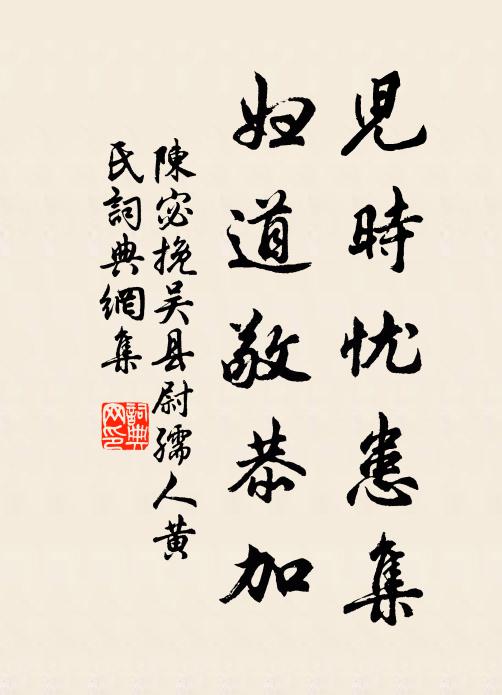 兒時忧患集
妇道敬恭加
陳宓挽吴县尉孺人黄
氏詞典網集
詞典网印